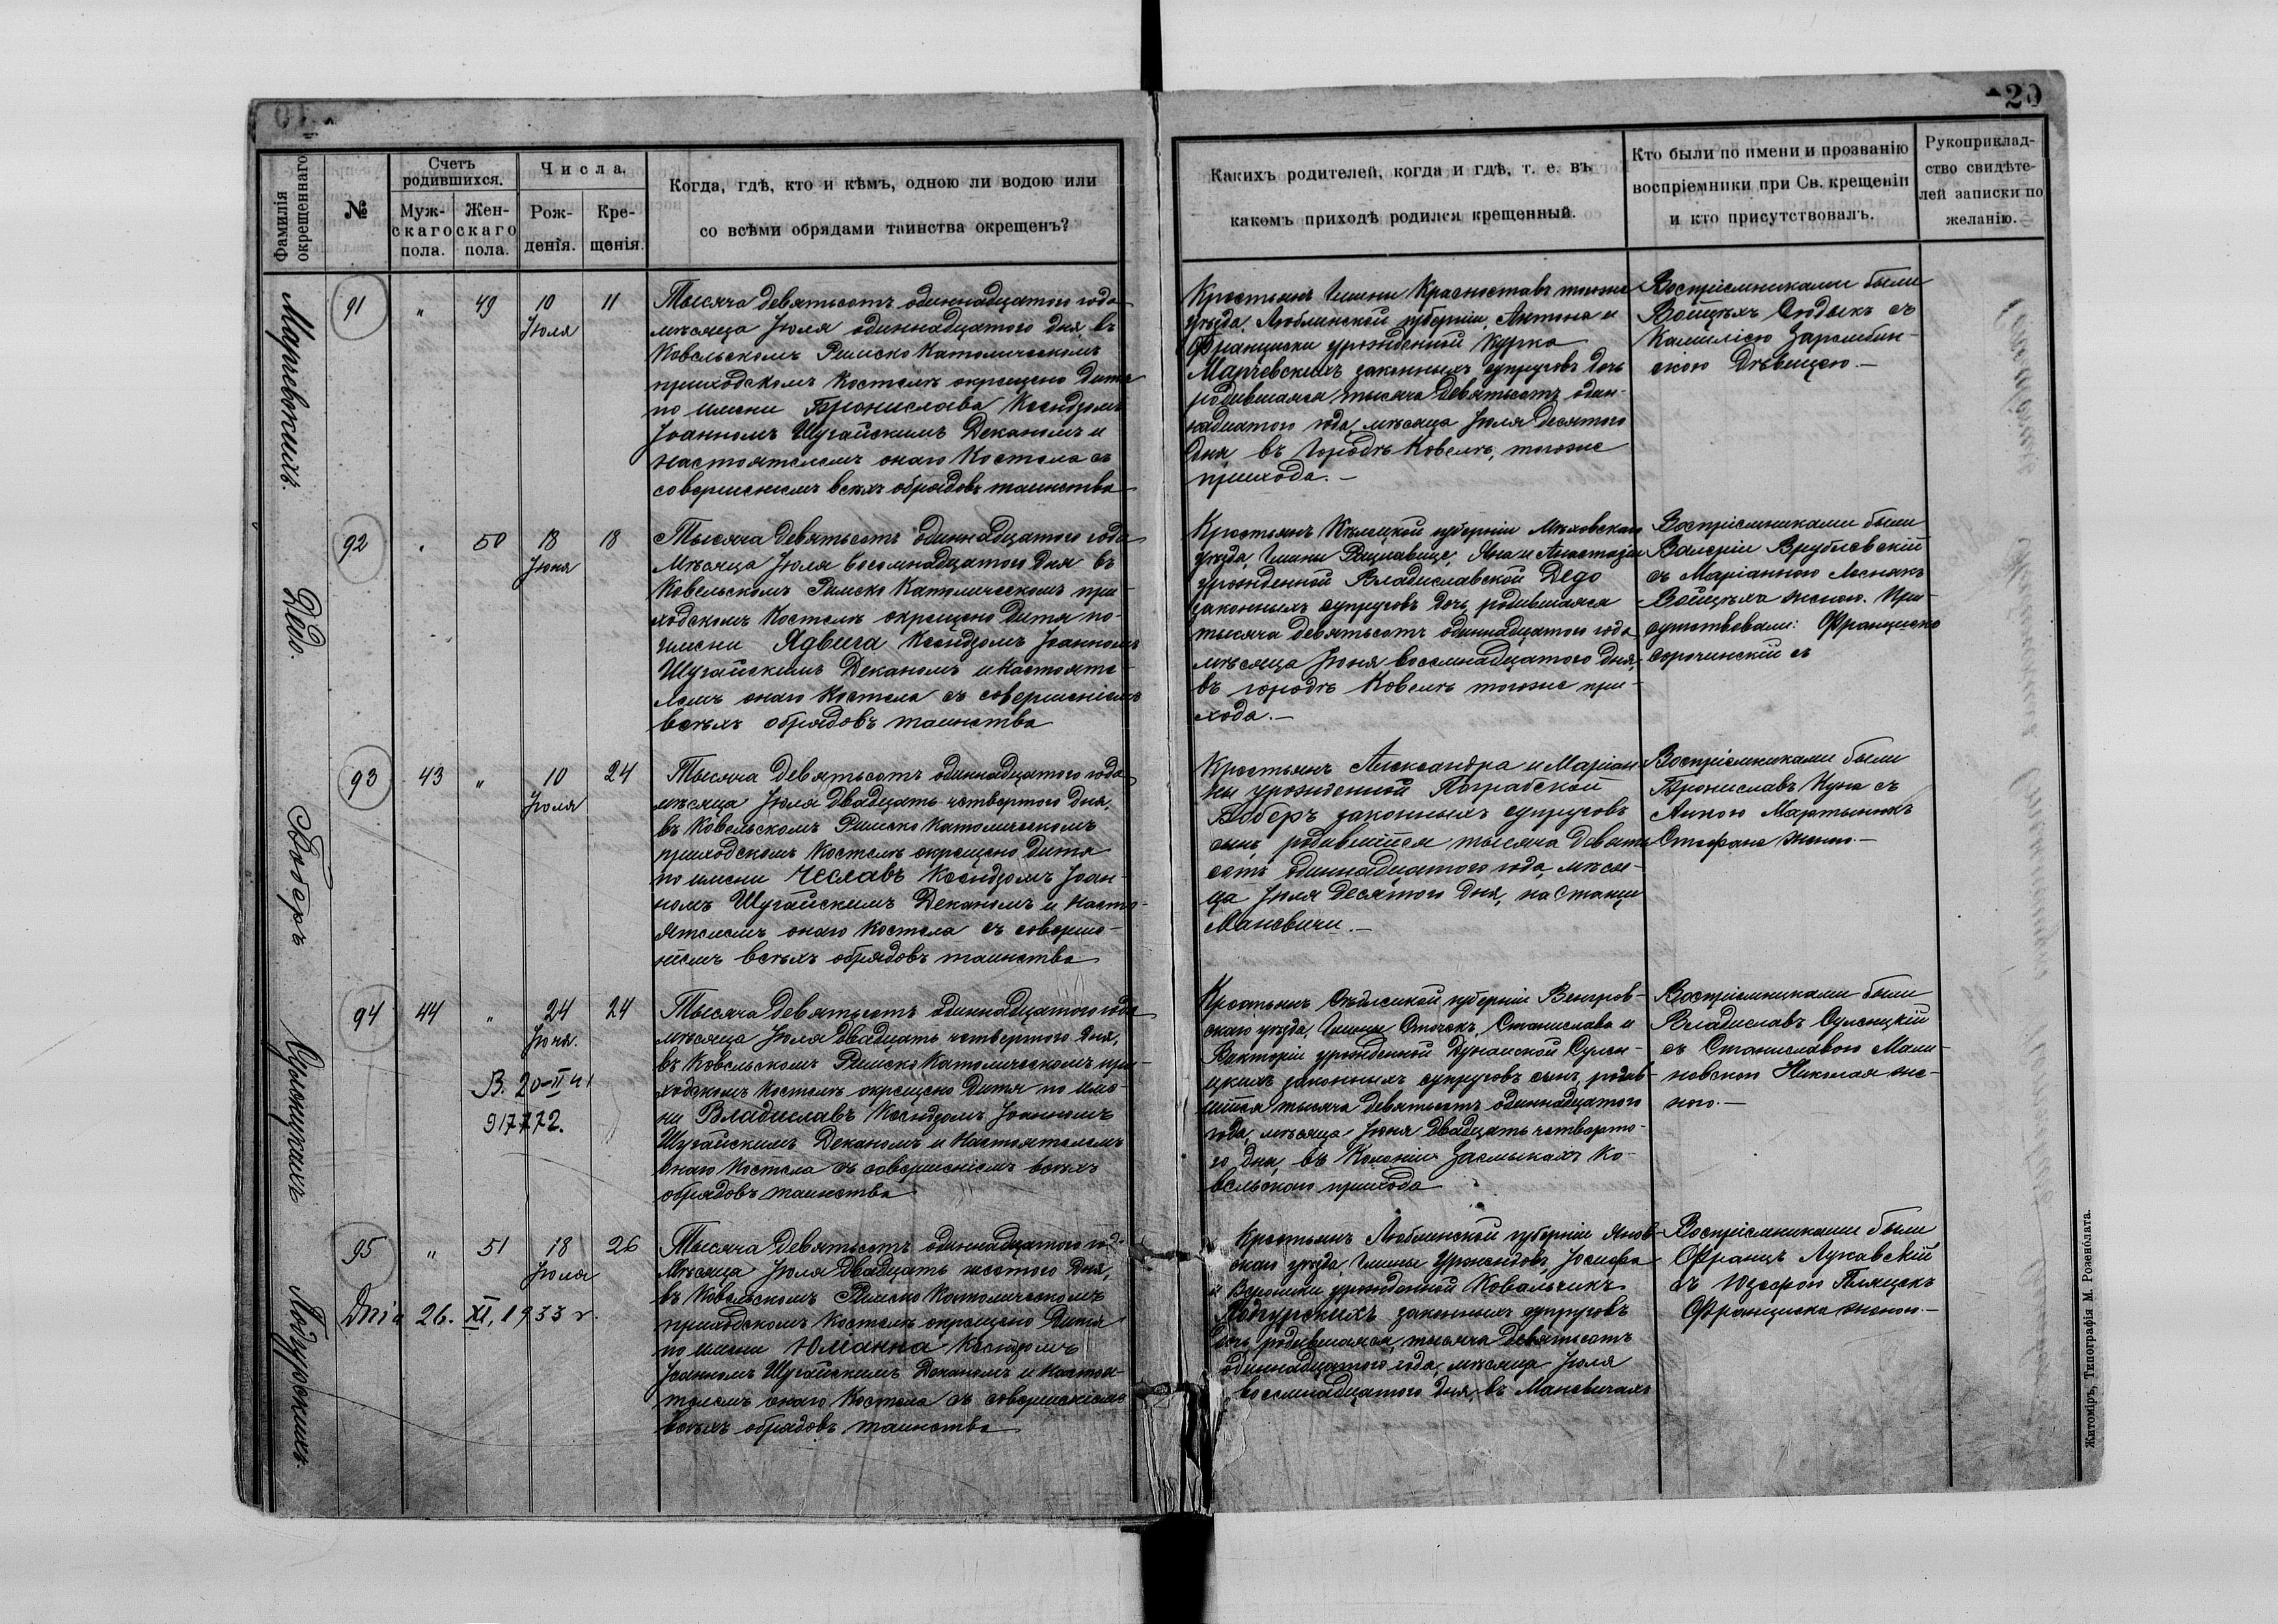 20
Фамилія окрещеннаго
№
Счетъ родившихся.
Мужскаго пола.
Женскаго пола.
Числа.
Рожденія.
Крещенія.
Когда, гдѣ, кто и кѣмъ, одною ли водою или
со всѣми обрядами таинства окрещенъ?
Какихъ родителей, когда и гдѣ, т. е. въ
какомъ приходѣ родился крещенный.
Кто были по имени и прозванію
воспріемники при Св. крещеніи
и кто присутствовалъ.
Рукоприклад-
ство свидѣте-
лей записки по
желанію.
Марчевскихъ.
91
„
49
10
Іюля
11
Тысяча девятьсотъ одиннадцатого года
мѣсяца Іюля одиннадцатого дня въ
Ковельскомъ Римско Католическомъ
приходскомъ Костелѣ окрещено дитя
по имени Бронислава Ксендзомъ
Іоанномъ Шугайскимъ Деканомъ и
настоятелемъ онаго Костела съ
совершеніемъ всѣхъ обрядовъ таинства
Крестьянъ Гмины Красноставъ тогоже
уѣзда, Люблинской губерніи, Антона и
Франциски урожденной Курко
Марчевскихъ законныхъ супруговъ дочь
родившаяся тысяча девятьсотъ один-
надцатого года, мѣсяца Іюля десятого
дня въ Городѣ Ковелѣ, тогоже
прихода.—
Воспріемниками были
Войцѣхъ съ
Камилією Зарембин-
скою Дѣвицею.—
Дедо.
92
„
50
18
Іюня
18
Тысяча девятьсотъ одиннадцатого года
Мѣсяца Іюля восемнадцатого Дня въ
Ковельскомъ Римско Католическомъ при-
ходскомъ Костелѣ окрещено дитя по-
имени Ядвига Ксендзомъ Іоанномъ
Шугайскимъ Деканомъ и Настояте-
лемъ онаго Костела съ совершеніемъ
всѣхъ обрядовъ таинства
Крестьянъ Кѣлецкой губерніи Мѣховскаго
уѣзда, Гмины Рацлавице, Яна и Анастазіи
урожденной Владиславской Дедо
законныхъ супруговъ дочь, родившаяся
тысяча девятьсотъ одиннадцатого года
мѣсяца Іюня восемнадцатого дня,
въ городѣ Ковелѣ тогоже при-
хода.—
Воспріемниками были
Валеріи Врублевскій
съ Маріанною Лесняхъ
Войцѣха женою. При-
сутствовали: Францишко
Сорочинскій съ
Боберъ
93
43
„
10
Іюля
24
Тысяча девятьсотъ одиннадцатого года
мѣсяца Іюля двадцать четвертого дня,
въ Ковельскомъ Римско Католическомъ
приходскомъ Костелѣ окрещено дитя
по имени Чеславъ Ксендзомъ Іоан-
номъ Шугайскимъ Деканомъ и Насто-
ятелемъ онаго Костела съ соверше-
ніемъ всѣхъ обрядовъ таинства
Крестьянъ Александра и Маріан-
ны урожденной Пограбской
Боберъ законныхъ супруговъ
сынъ родившійся тысяча девять
сотъ одиннадцатого года, мѣся-
ца Іюля десятого дня, на Станціи
Маневичи.—
Воспріемниками были
Брониславъ Куна съ
Анною Мартынюкъ
Стефана женою.—
Суленцкихъ
94
44
„
24
Іюня.
24
В. 20-II 41
917772.
Тысяча девятьсотъ одиннадцатого года
мѣсяца Іюля двадцать четвертого дня,
въ Ковельскомъ Римско Католическомъ при-
ходскомъ Костелѣ окрещено дитя по име-
ни Владиславъ Ксендзомъ Іоанномъ
Шугайскимъ Деканомъ и Настоятелемъ
онаго Костела съ совершеніемъ всѣхъ
обрядовъ таинства
Крестьянъ Сѣдлецкой губерніи Венгров-
скаго уѣзда, Гмины Сточекъ, Станислава и
Викторіи урожденной Дунайской Сулен-
цкихъ законныхъ супруговъ сынъ, родив-
шійся тысяча девятьсотъ одиннадцатого
года, мѣсяца Іюня двадцать четверто-
го дня, въ Колоніи Засмыкахъ Ко-
вельскаго прихода
Воспріемниками были
Владиславъ Суленцкій
съ Станиславою Мали-
новской Николая же-
ною.—
Подгурскихъ.
95
„
51
18
Іюля
26
Dnia 26. XI, 1933 r.
Тысяча девятьсотъ одиннадцатого года
Мѣсяца Іюля двадцать шестого дня,
въ Ковельскомъ Римско Католическомъ
приходскомъ Костелѣ окрещено дитя
по имени Юліанна Ксендзомъ
Іоанномъ Шугайскимъ Деканомъ и Настоя-
телемъ онаго Костела съ совершеніемъ
всѣхъ обрядовъ таинства
Крестьянъ Люблинской губерніи Янов-
скаго уѣзда, Гмины Уржендовъ, Іосифа
и Вероники урожденной Ковальчикъ
Подгурскихъ законныхъ супруговъ
дочь, родившаяся тысяча девятьсотъ
одиннадцатого года, мѣсяца Іюля
восемнадцатого дня, въ Маневичахъ
Воспріемниками были
Францъ Лукавскій
съ Юзефою Пляцекъ
Франциска женою.—
Житоміръ, Типографія М. Розенблата.